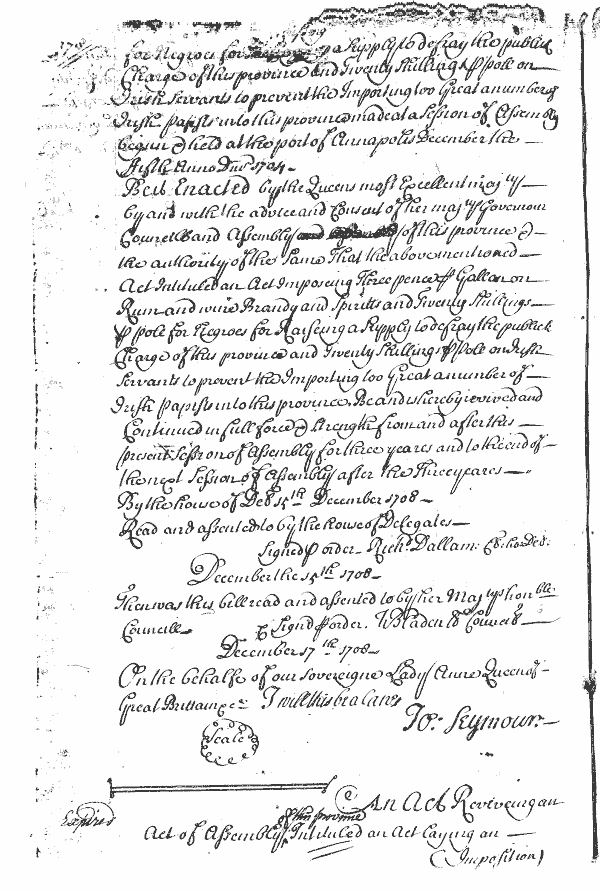 for Negroes for a Supply to defray the publick
Charge of this province and Twenty Shillings p pole on
Irish Servants to prevent the Importing too Great a number of
Irish Papists into this province made at a Session of Assembly
begun & held at the port of Annapolis December the
fifth Anno Dni 1704
Be it Enacted by the Queens most Excellent maj:ty
by and with the advice and Consent of her maj:tys Governour
Councill and Assembly of this province &
the authority of the Same That the abovementioned
Act Intituled an Act Imposeing Three pence p Gallon on
Rum and wine Brandy and Spiritts and Twenty Shillings
p pole for Negroes for Raiseing a Supply to defray the publick
Charge of this province and Twenty Shillings p pole on Irish
Servants to prevent the Importing too Great a number of
Irish Papists into this province Be and is hereby revived and
Continued in full force & Strength from and after this
present Session of Assembly for three yeares and to the end of
the next Session of Assembly after the Three yeares
By the house of Del:s 15th December 1708
Read and assented to by the house of Delegates
Signed p order Rich:d Dallam Cl: ho: Del:
December the 15th 1708
Then was this bill read and assented to by her Maj:tys hon:ble
Councill
Signd p order. W Bladen Cl Councill
December 17th 1708
On the behalfe of our sovereigne Lady Anne Queen of
Great Brittain &c: I will this be a Law
Jo: Seymour
Seale
An Act Reviveing an
Expired
of this province
Act of Assembly Intituled an Act Laying an
(Imposition)